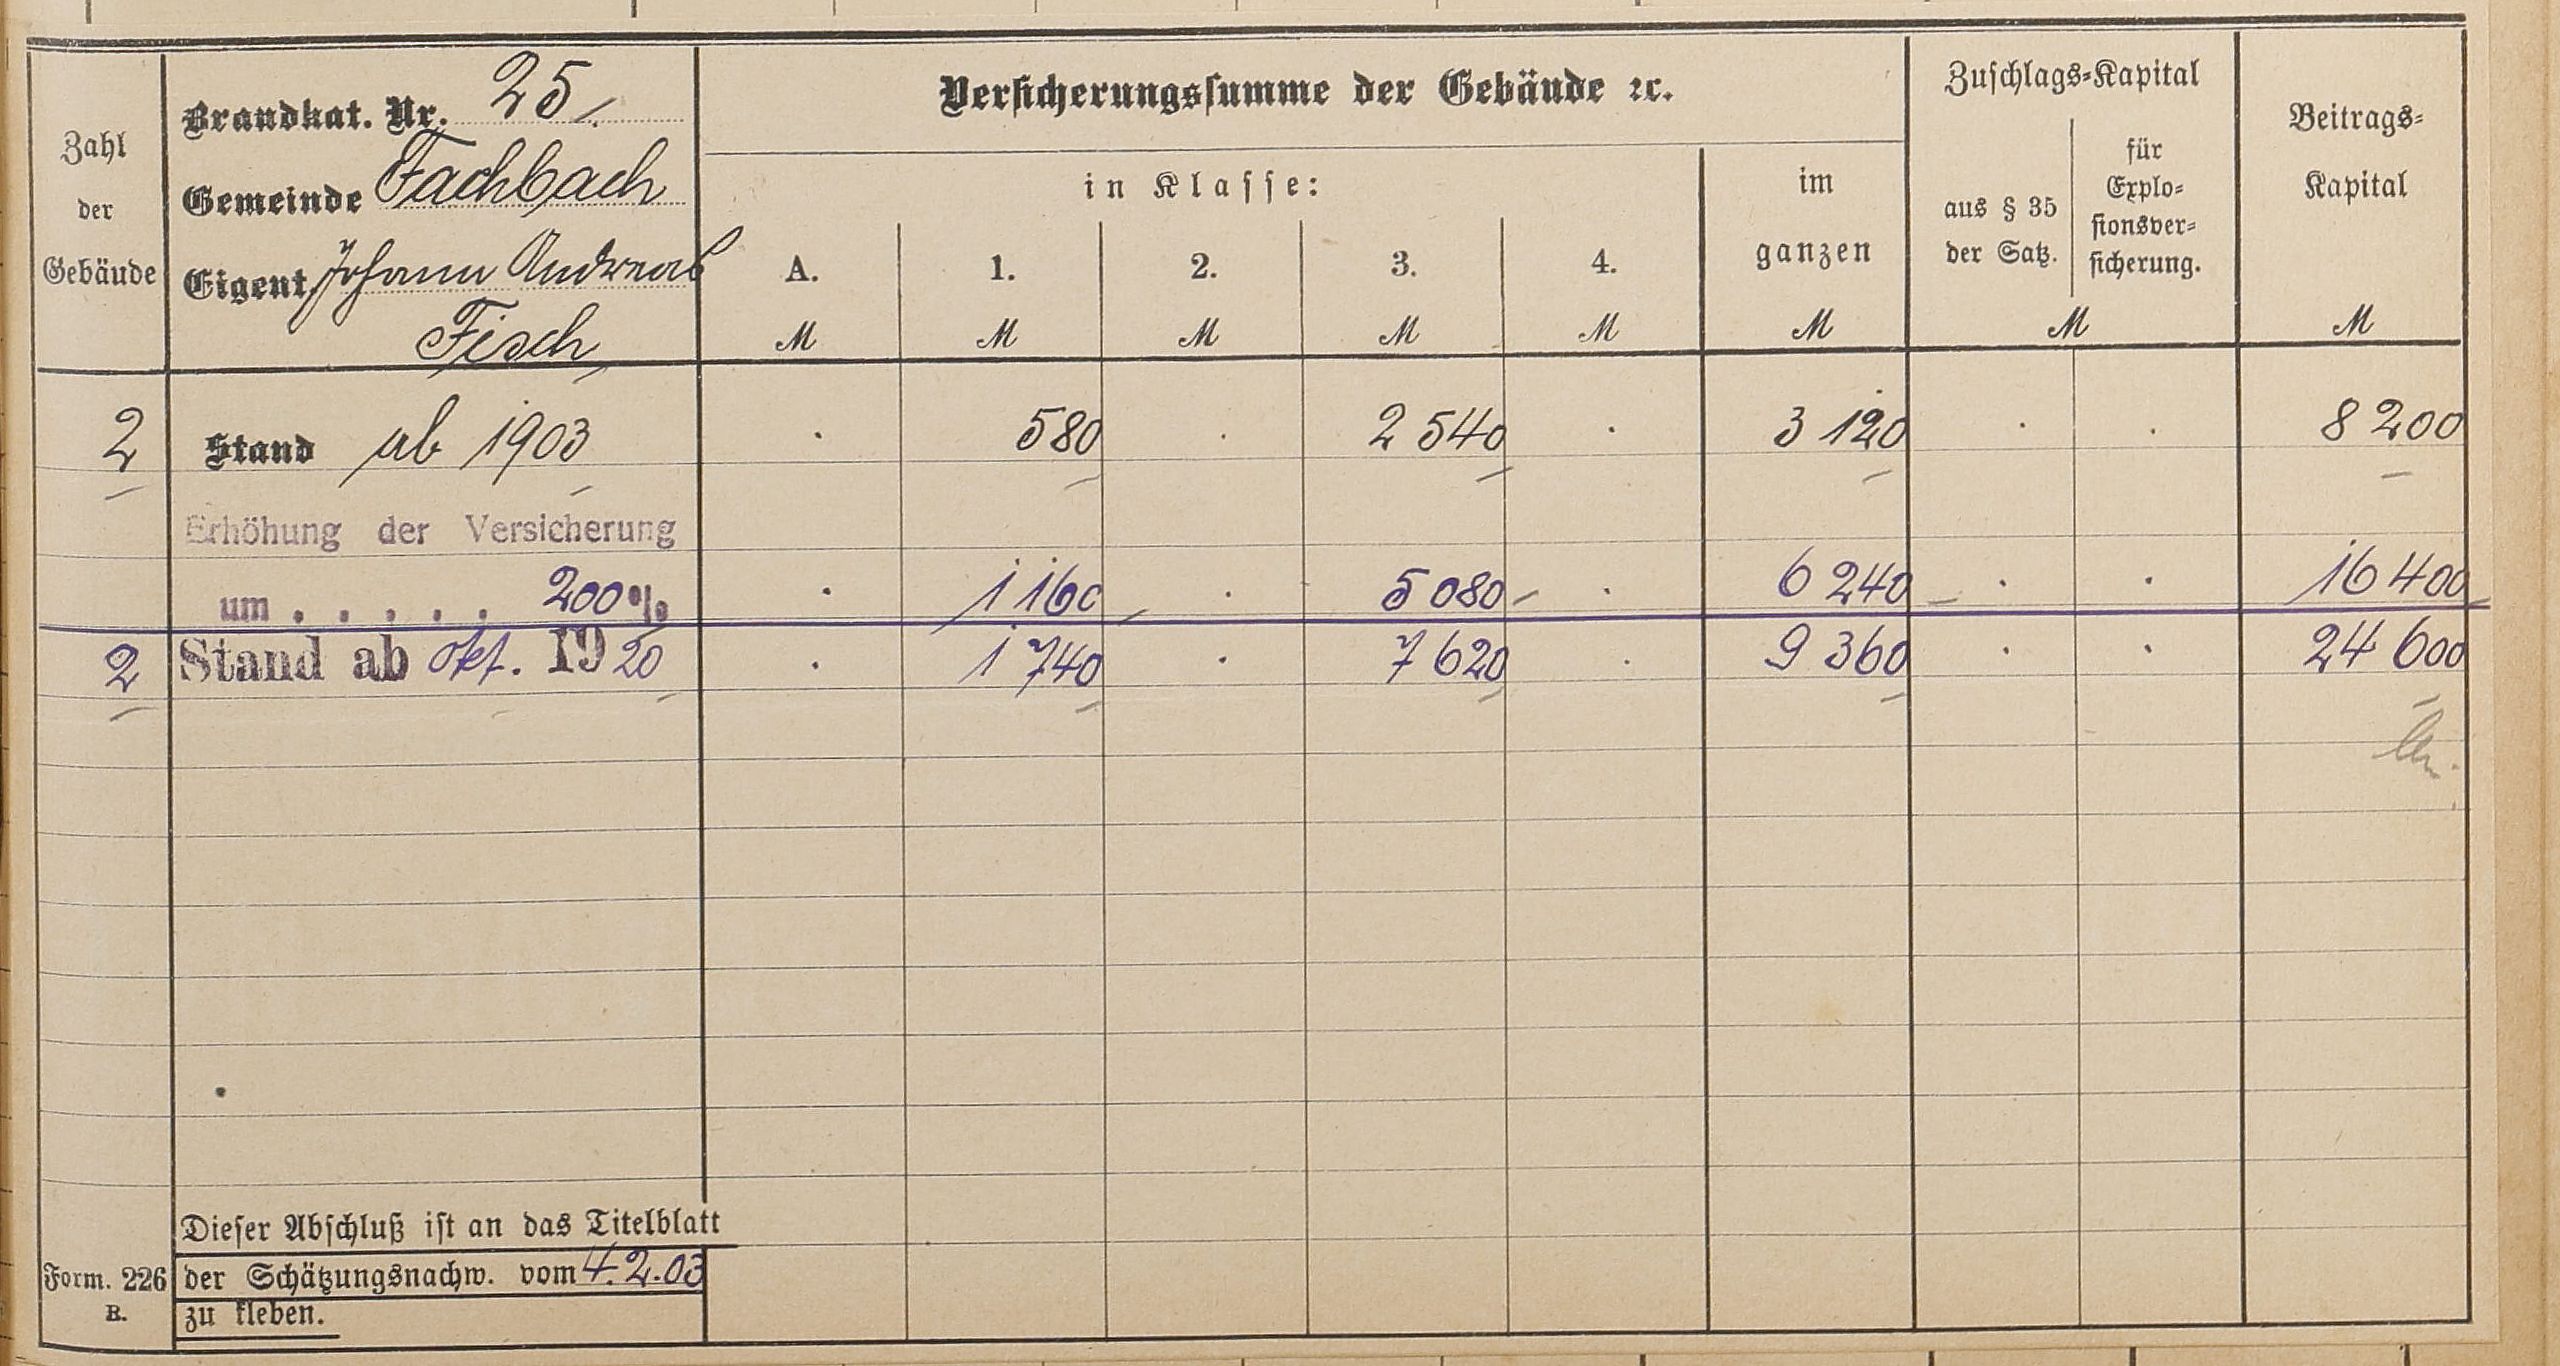 Zahl
der
Gebäude
Brandkat. Nr. 25
Gemeinde Fachbach
Eigent. Johann Andreas
Fisch
Versicherungssumme der Gebäude ꝛc.
in Klasse:
A. 1. 2. 3. 4.
im
ganzen
Zuschlags-Kapital
aus § 35
der Satz.
für
Explo-
sionsver-
sicherung.
Beitrags-
Kapital
M M M M M M M M
2 Stand ab 1903 . 580 . 2 540 . 3 120 . . 8 200
Erhöhung der Versicherung
um . . . . . 200% . 1 160 . 5 080 . 6 240 . . 16 400
2 Stand ab Okt. 1920 . 1 740 . 7 620 . 9 360 . . 24 600
Dieser Abschluß ist an das Titelblatt
der Schätzungsnachw. vom 4.2.03
zu kleben.
Form. 226
B.